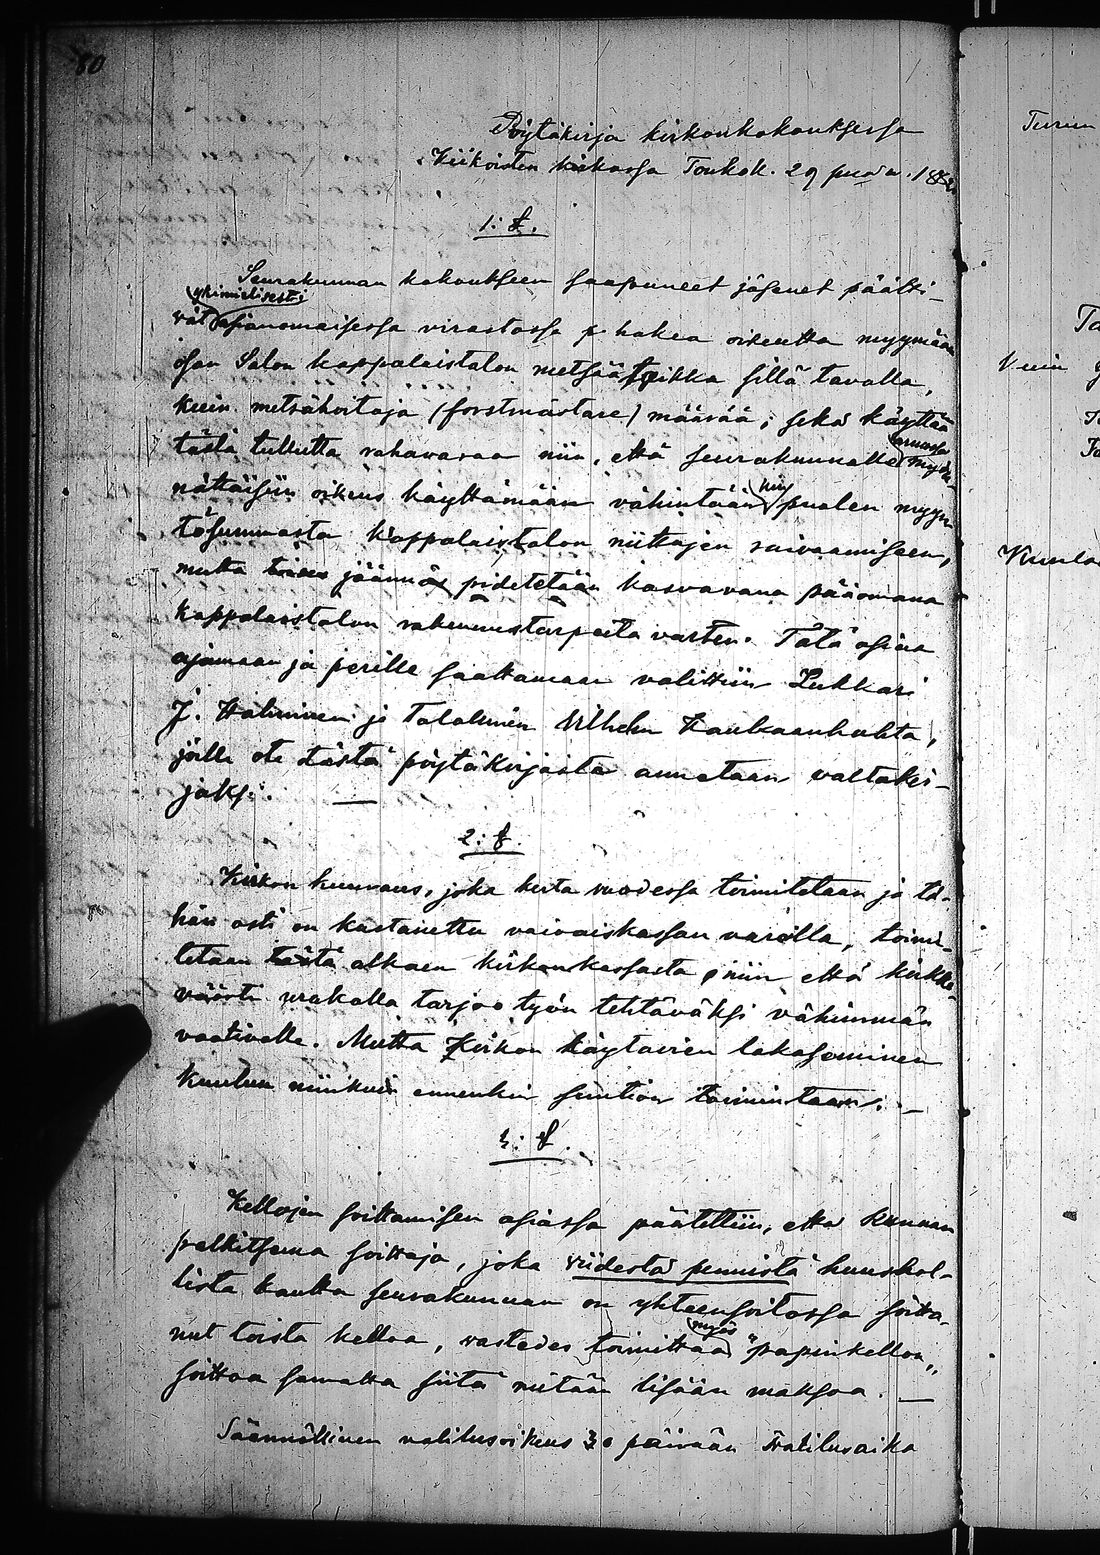 80
Pöytäkirja kirkonkokouksessa
Kiikoisten kirkossa Toukok. 29 päivä. 188
1: §.
Seurakunnan kokoukseen saapuneet jäsenet päätti-
yksimielisesti
vät asianomaisessa virastossa hakea oikeutta myymään
osan Salon kappalaistalon metsää paikka sillä tavalla,
kuin metsähoitaja (forstmästare) määrää, sekä käyttää
tästä tullutta rahavaraa niin, että seurakunnalle
armossa myön-
nättäisiin oikeus käyttämään vähintään puolen myyn-
tösummasta kappalaistalon niittujen raivaamiseen,
mutta jäännös pidetetään kasvavana pääomana
kappalaistalon rakennustarpeita varten. Tätä asiaa
ajamaan ja perille saattamaan valittiin Lukkari
J. Halminen ja Talolinen Vilhelm Haukaanhuhta,
joille ote tästä pöytäkirjasta annetaan valtakir-
jaksi. —
2: §.
Kirkon kuuraus, joka kerta vuodessa toimitetaan ja tä-
hän asti on kustannettu vaivaiskassan varoilla, toimi-
tetaan tästä alkaen kirkonkassasta niin että kirkko-
väärti urakalla tarjoo työn tehtäväksi vähimmän
vaativalle. Mutta Kirkon käytävien lakaseminen
kuuluu niinkuin ennenkin suntion toimintaan. —
3: §.
Kellojen soittamisen asiassa päätettiin, että kunnan
palkitsema soittaja, joka viidestä pennistä huushol-
lista kautta seurakunnan on yhteensoitossa soitta-
myös
nut toista kelloa, vastedes toimittaa "papinkellon"
soittoa samalla siitä mitään lisään maksoa. —
Säännöllinen valitusoikeus 30 päivään Valitusaika
Turun
Kuula